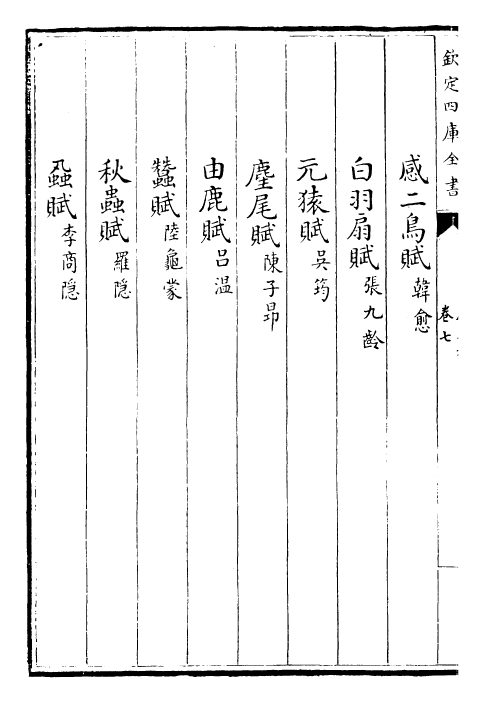 欽定四庫全書
卷七
感二鳥賦 韓愈
白羽扇賦 張九齡
元猿賦 吳筠
麈尾賦 陳子昂
由鹿賦 呂溫
蠶賦 陸龜蒙
秋蟲賦 羅隐
蝨賦 李商隐